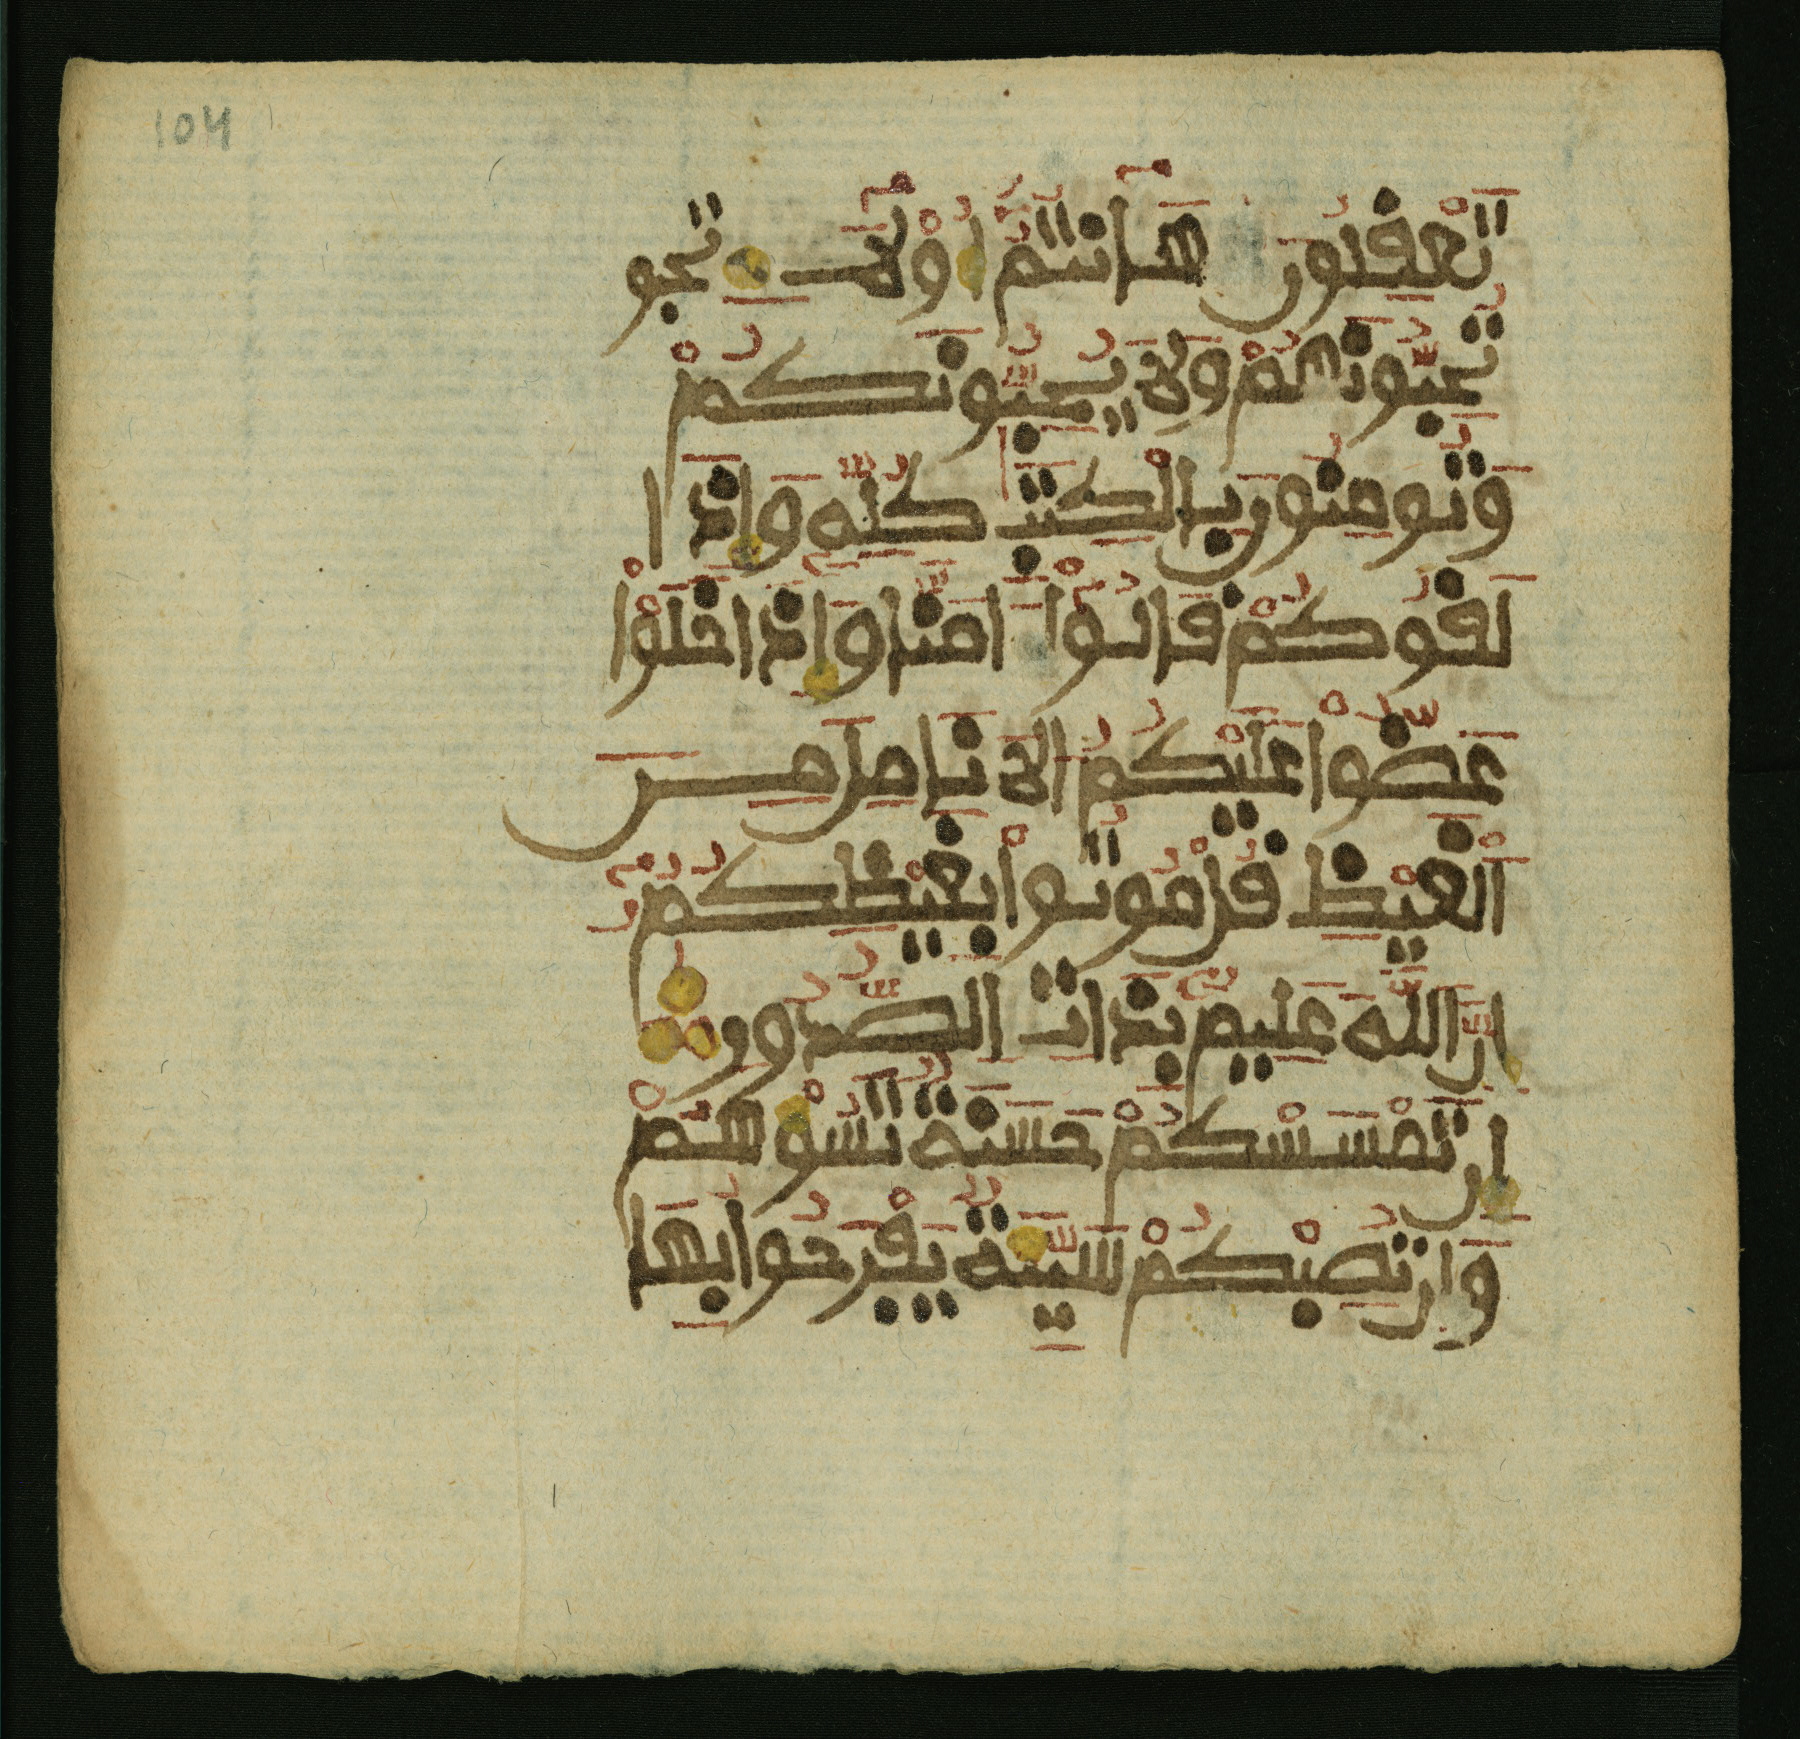 104
تَعْفِلُونَ هَٰانتُمُۥٓ أُوْلَآءِ تحبو
تُحِبُّونَهُمْ وَلَا يُحِبُّونَكُمْ
وَتُومِنُونَ بِالْكِتَٰبِ كُلِّهِۦ وَإِذَا
لَقُوكُمْ قَالُوٓاْ ءَامَنَّا وَإِذَا خَلَوْاْ
عَضُّواْ عَلَيْكُمُ الَانَامِلَ مِنَ
اَلْغَيْظِ قُلْ مُوتُواْ بِغَيْظِكُمُۥٓ
إِنَّ اَللَّهَ عَلِيمٌۢ بِذَاتِ اِلصُّدُورِ
إِن تَمْسَسْكُمْ حَسَنَةٌ تَسُؤْهُمْ
وَإِن تُصِبْكُمْ سَيِّئَةٌ يَفْرَحُواْ بِهَا